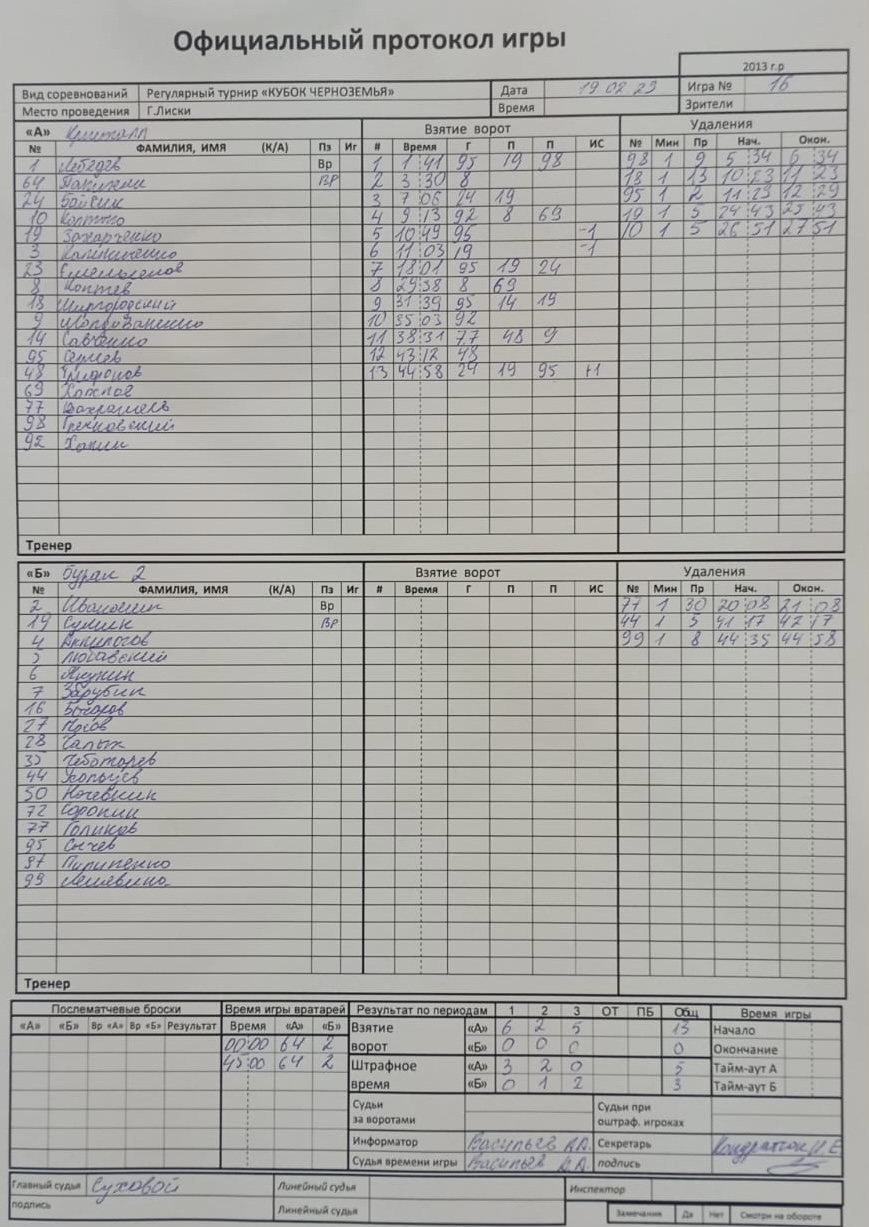 Официальный протокол игры
2013 г.р
Вид соревнований Регулярный турнир «КУБОК ЧЕРНОЗЕМЬЯ» Дата 19 02 23 Игра № 16
Место проведения Г.Лиски Время Зрители
«А» Кристалл Взятие ворот Удаления
№ ФАМИЛИЯ, ИМЯ (К/А) Пз Иг # Время Г П П ИС № Мин Пр Нач. Окон.
1 Лебедев Вр 1 1:41 95 19 98 98 1 9 5:34 6:34
64 ВР 2 3:30 8 18 1 13 10:23 11:23
24 Бойсин 3 7:06 24 19 95 1 2 11:29 12:29
10 4 9:13 92 8 69 19 1 5 24:43 25:43
19 Захарченко 5 10:49 95 -1 10 1 5 26:51 27:51
3 Калиниченко 6 11:03 19 -1
23 Емельянов 7 18:01 95 19 24
8 Коптев 8 29:38 8 69
18 Миргородский 9 31:39 95 14 19
9 10 35:03 92
14 Савченко 11 38:31 77 48 9
95 12 43:12 48
48 13 44:58 24 19 95 +1
69
77
98
92 Ханин
Тренер
«Б» Буран 2 Взятие ворот Удаления
№ ФАМИЛИЯ, ИМЯ (К/А) Пз Иг # Время Г П П ИС № Мин Пр Нач. Окон.
2 Вр 77 1 30 20:08 21:08
19 ВР 44 1 5 41:17 42:17
4 99 1 8 44:35 44:58
5 Любавский
6 Якунин
7 Зарубин
16 Бочаров
27 Носов
28 Чалых
35 Чеботарев
44
50
72 Сорокин
77 Голиков
95 Сычев
97 Пилипенко
99
Тренер
Послематчевые броски Время игры вратарей Результат по периодам 1 2 3 ОТ ПБ Общ Время игры
«А» «Б» Вр «А» Вр «Б» Результат Время «А» «Б» Взятие «А» 6 2 5 13 Начало
00:00 64 2 ворот «Б» 0 0 0 0 Окончание
45:00 64 2 Штрафное «А» 3 2 0 5 Тайм-аут А
время «Б» 0 1 2 3 Тайм-аут Б
Судьи Судьи при
за воротами оштраф. игроках
Информатор Васильев А.А. Секретарь
Судья времени игры Васильев А.А. подпись
Главный судья Суховой Линейный судья Инспектор
подпись Линейный судья Замечания Да Нет Смотри на обороте